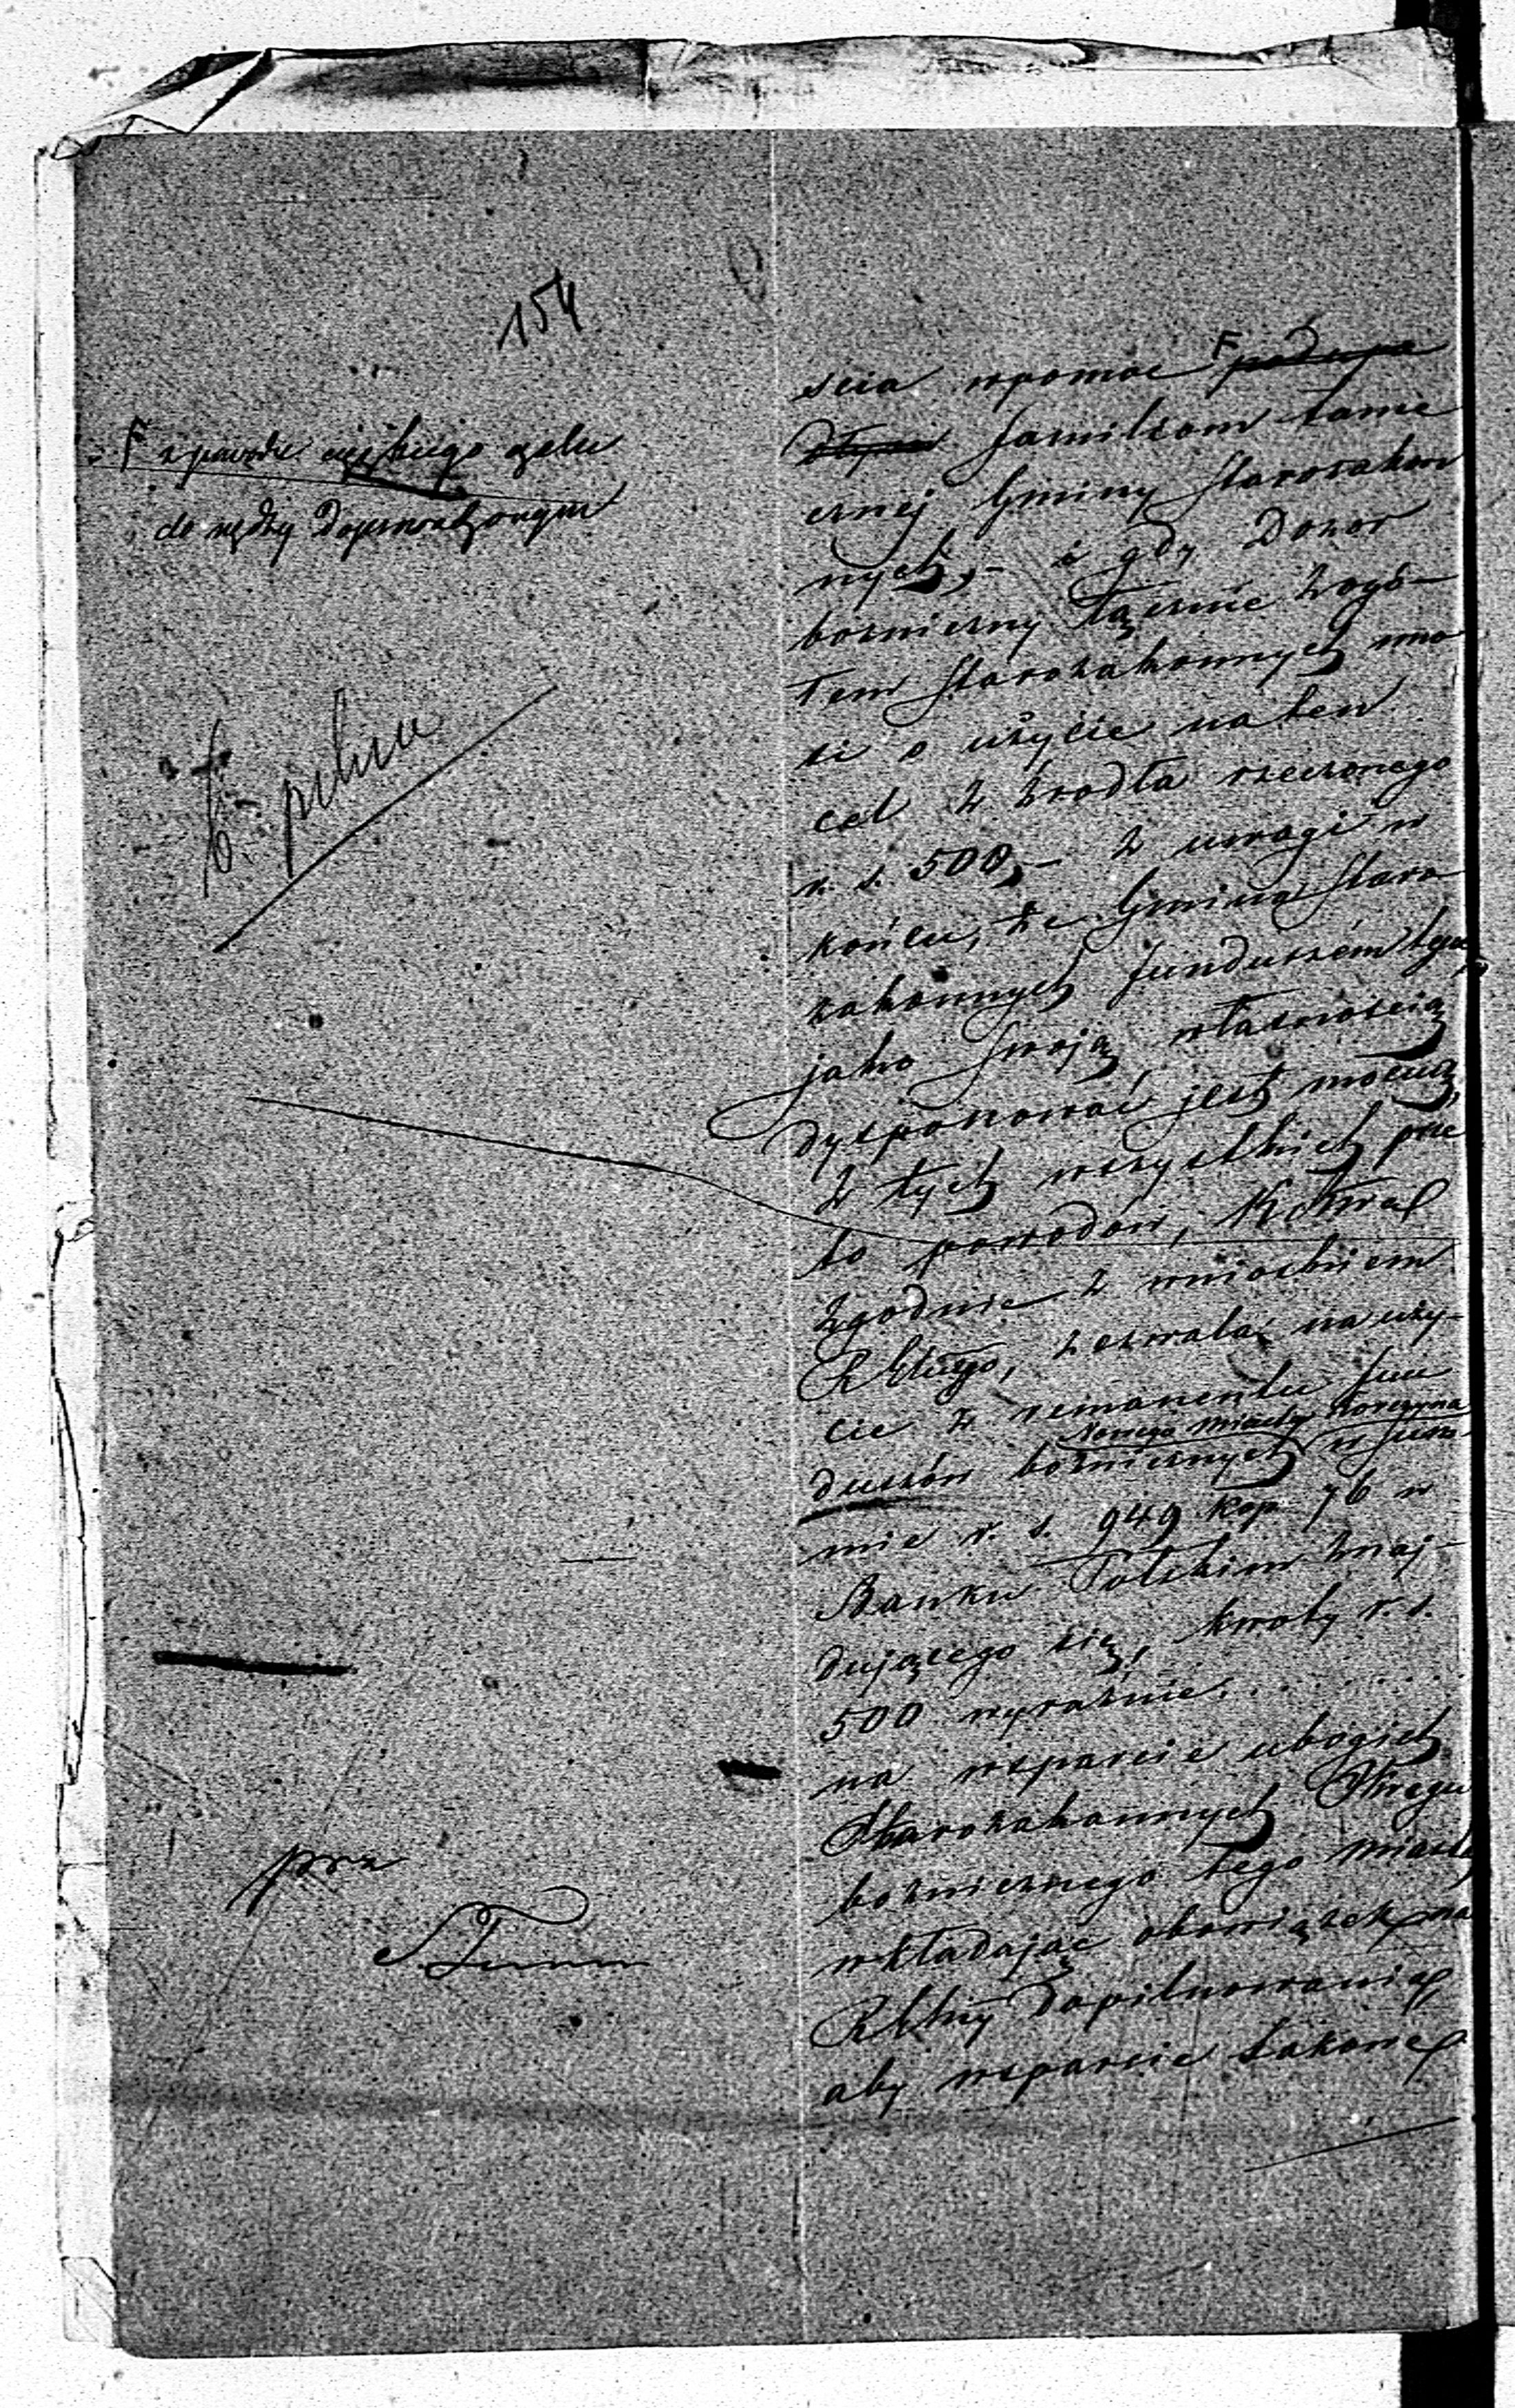 154
F z powodu ciężkiego czasu
do nędzy doprowadzonym
scia wpomoc F podupa
dłym familiom tame
cznej Gminy Starozakon
nych, – i gdy Dozor
bożniczny łącznie z ogó–
łem Starozakonnych wno
si o użycie na ten
cel z źrodła rzeczonego
r. s. 500, – z uwagi w
końcu, że Gmina Staro
zakonnych funduszem tym
jako swoją własnością
dysponować jest mocną,
z tych wszystkich prze
to powodów,
zgodnie z wnioskiem
zezwala na uży–
cie z remanentu fun
Nowego Miasta Korczyna
duszów bożnicznych w sum
mie r. s. 949 kop. 76 w
Banku Polskim znaj–
dującego się, kwoty r. s.
500 wyraźnie . . . . . . .
na wsparcie ubogich
Starozakonnych Okręgu
bożnicznego tego miasta,
wkładając obowiązek na
dopilnowania,
aby wsparcie takowe
prz